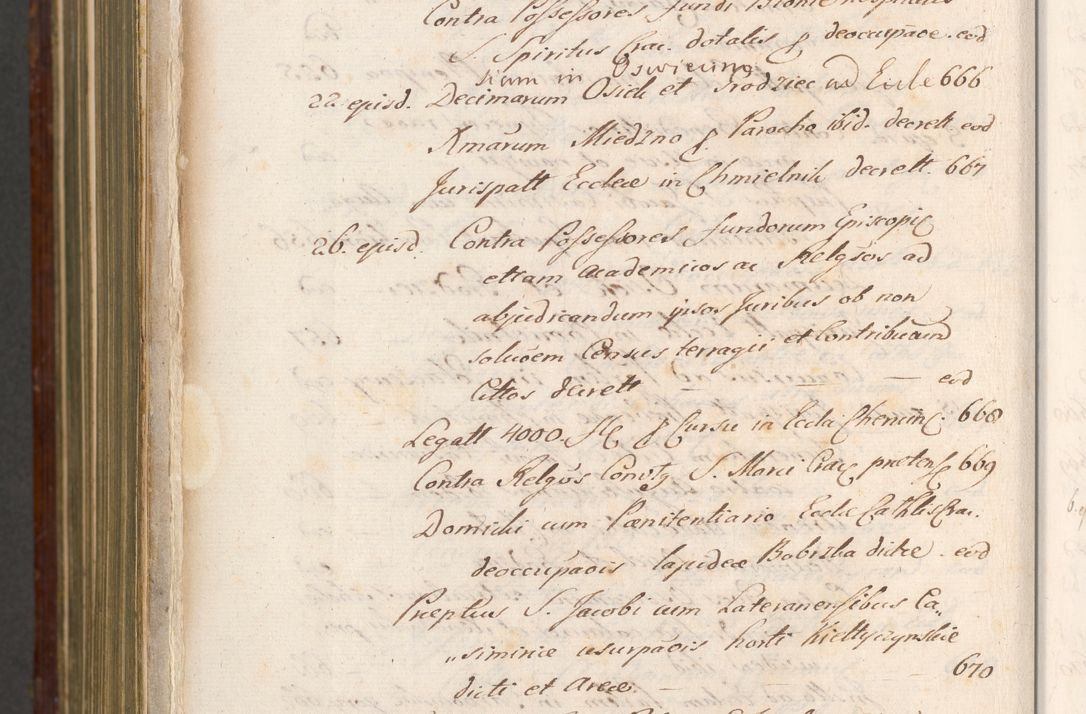 Contra Possessores fundi
S. Spiritus Crac. dotalis p deoccupãoe. eod
sium in Oswiecimo
22. episd. Decimarum Osiek et Grodziec ad Eccle 666
Xmarum Miedzno p. Parocho ibid. decrett eod
Jurispatt Ecclæ in Chmielnik decrett. 667
26. episd. Contra Possessores fundorum Episcopi
ettam Academicos ac Relgsos ad
abjudicandum ipsos Juribus ob non
soluõem Census terragii et Contribuãm
Cittos decrett — — — eod
Legatt 4000. p Cursu in Eccla Chencin 668
Contra Relgos S. Marci Crac protens 669
Dominici cum Pænitentiario Eccla Cathlis Crac.
deoccupaõis lapideæ Bobrzka dictæ. eod
Præptus S. Jacobi cum Lateranensibus Ca„
„simiriæ usurpaõis horti Kieltyczynskie
dicti et Areæ. — 670